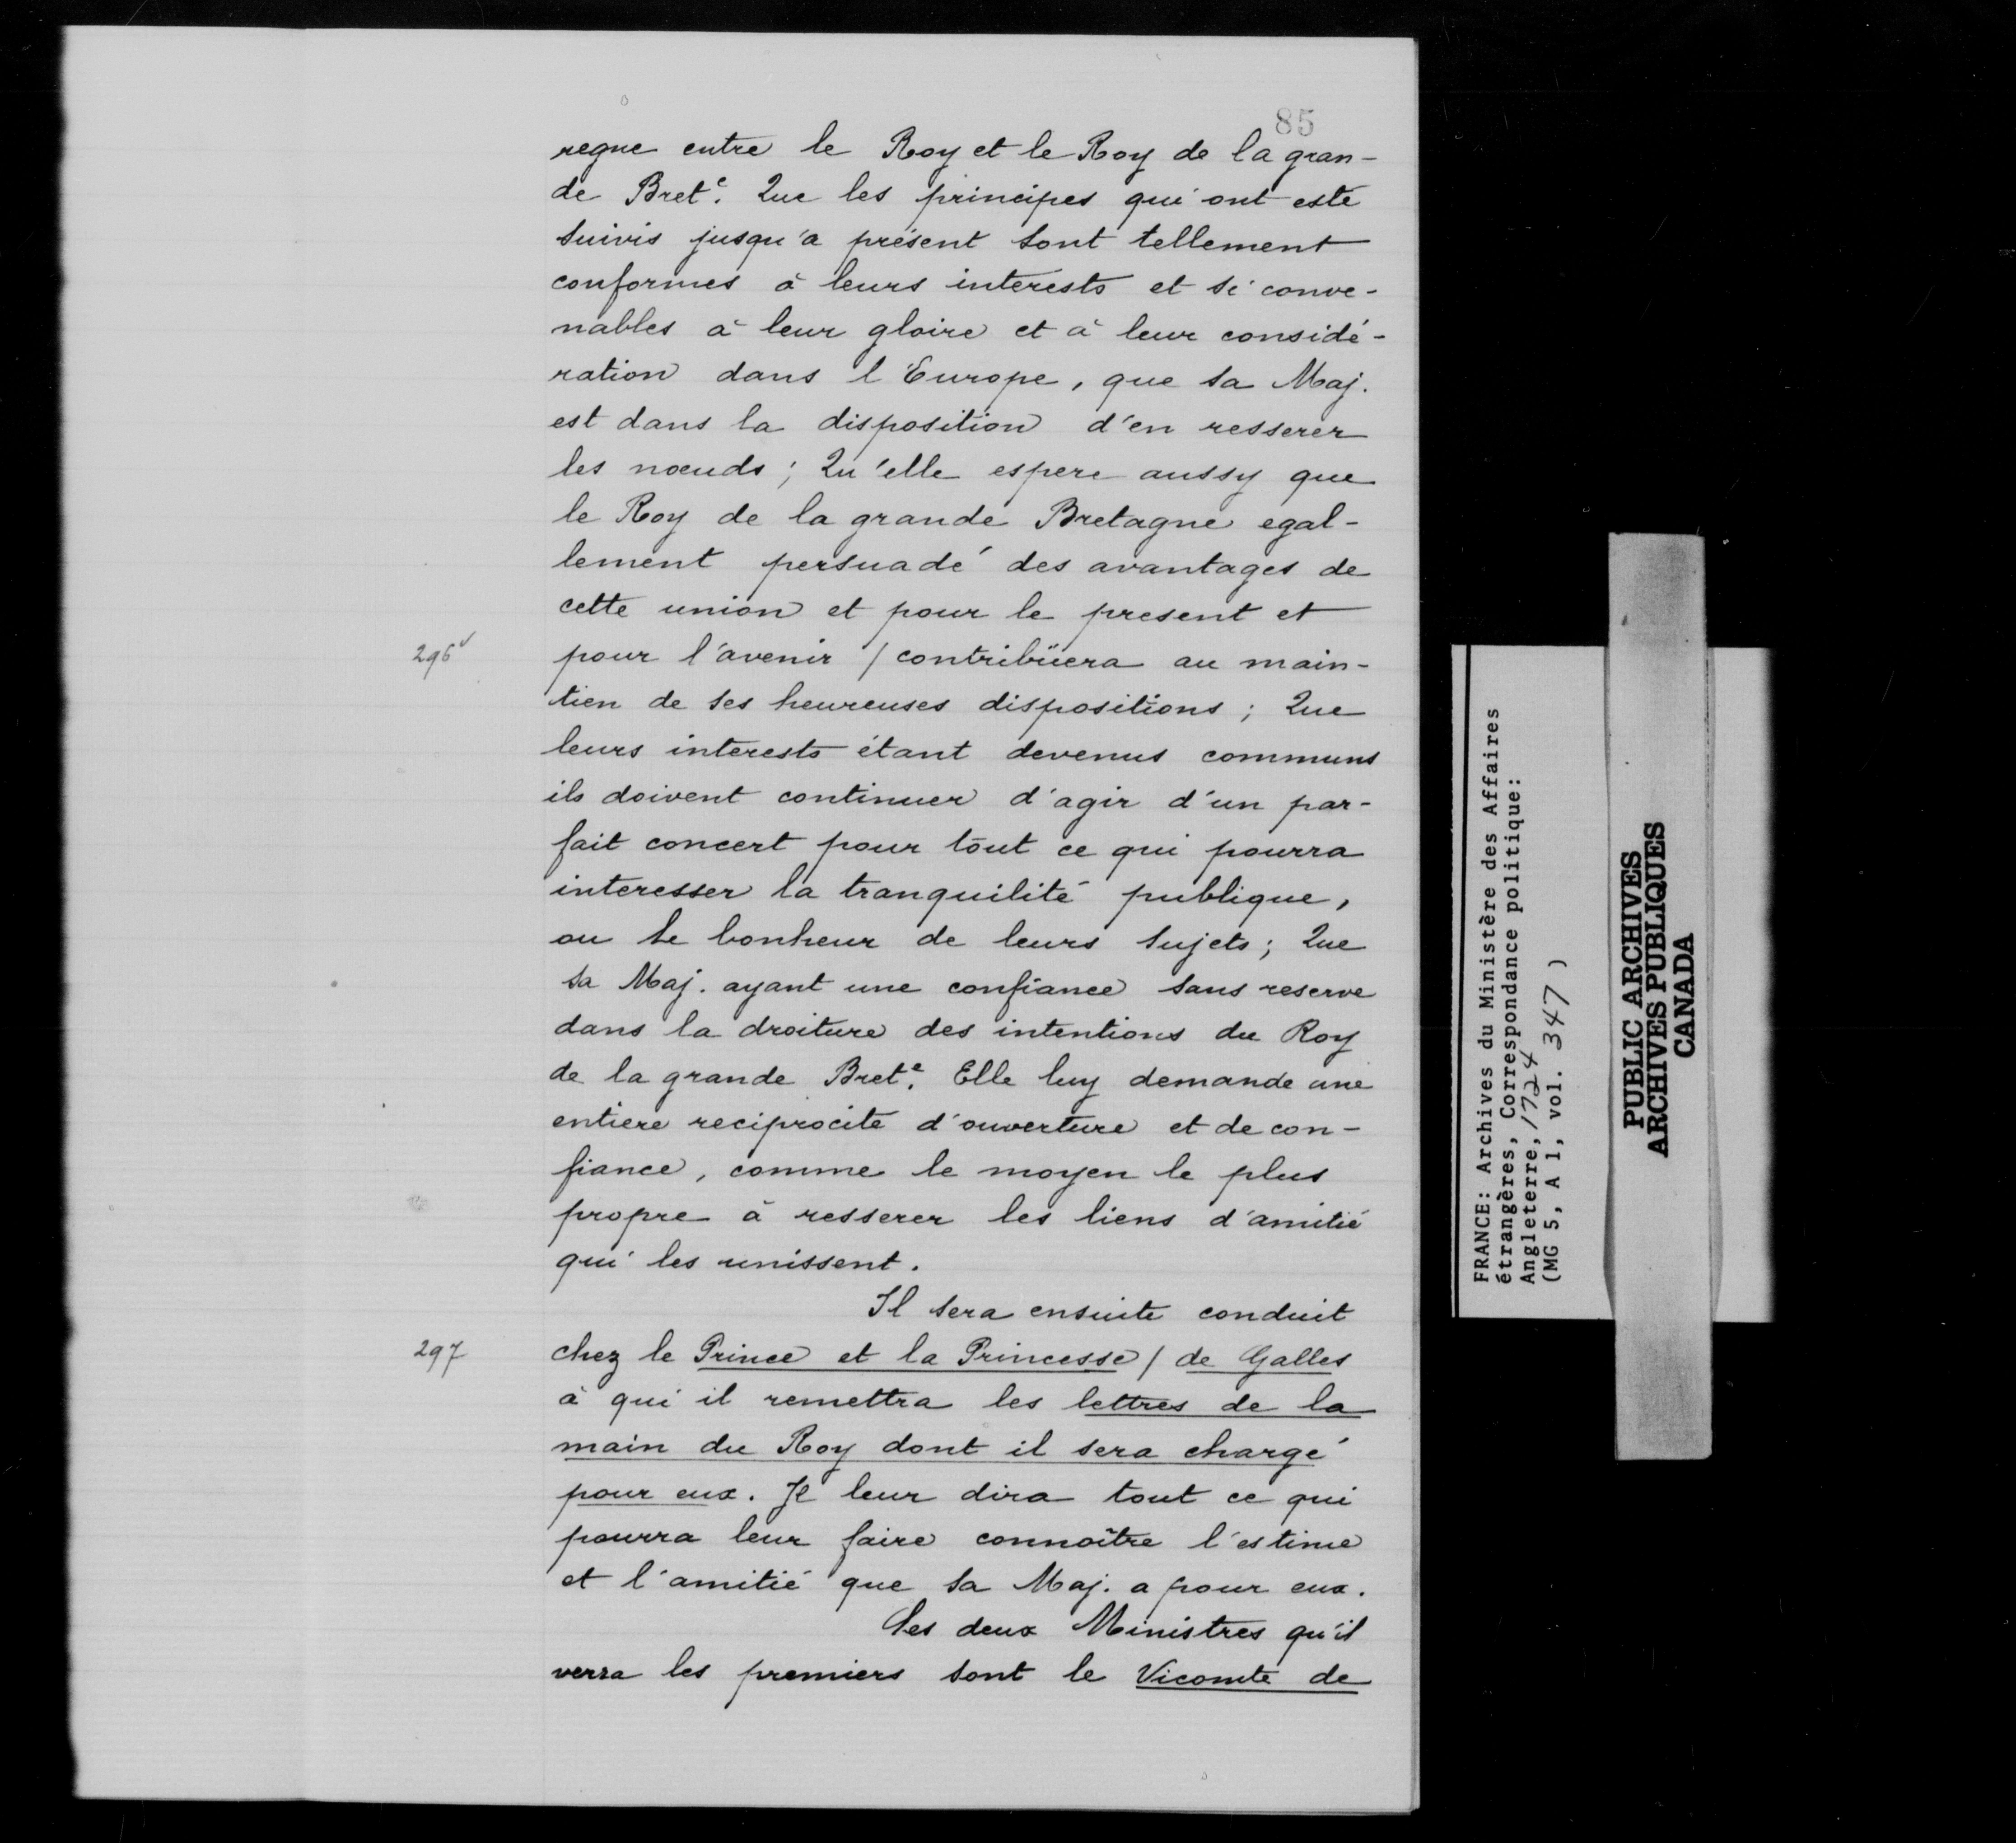 85
regne entre le Roy et le Roy de la gran-
de Bret.e Que les principes qui ont esté
suivis jusqu'a présent sont tellement
conformes à leurs interests et si conve-
nables à leur gloire et à leur considé-
ration dans l'Europe, que sa Maj.
est dans la disposition d'en resserer
les nœuds; Qu'elle espere aussy que
le Roy de la grande Bretagne egal-
lement persuadé des avantages de
cette union et pour le present et
296v pour l'avenir / contribüera au main-
tien de ses heureuses dispositions; Que
leurs interests étant devenus communs
ils doivent continuer d'agir d'un par-
fait concert pour tout ce qui pourra
interesser la tranquilité publique,
ou le bonheur de leurs sujets; Que
sa Maj. ayant une confiance sans reserve
dans la droiture des intentions du Roy
de la grande Bret.e Elle luy demande une
entiere reciprocité d'ouverture et de con-
fiance, comme le moyen le plus
propre à resserer les liens d'amitié
qui les unissent.
Il sera ensuite conduit
297 chez le Prince et la Princesse / de Galles
à qui il remettra les lettres de la
main du Roy dont il sera chargé
pour eux. Il leur dira tout ce qui
pourra leur faire connoître l'estime
et l'amitié que sa Maj. a pour eux.
Les deux Ministres qu'il
verra les premiers sont le Vicomte de
FRANCE: Archives du Ministère des Affaires
étrangères, Correspondance politique:
Angleterre, 1724
(MG 5, A 1, vol. 347 )
PUBLIC ARCHIVES
ARCHIVES PUBLIQUES
CANADA